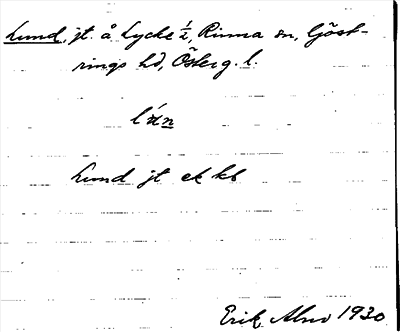 Lund, jt. å Lycke ½, Rinna sn, Göst-
rings hd, Österg. l.
Lund jt ek kb
Erik Alno 1930